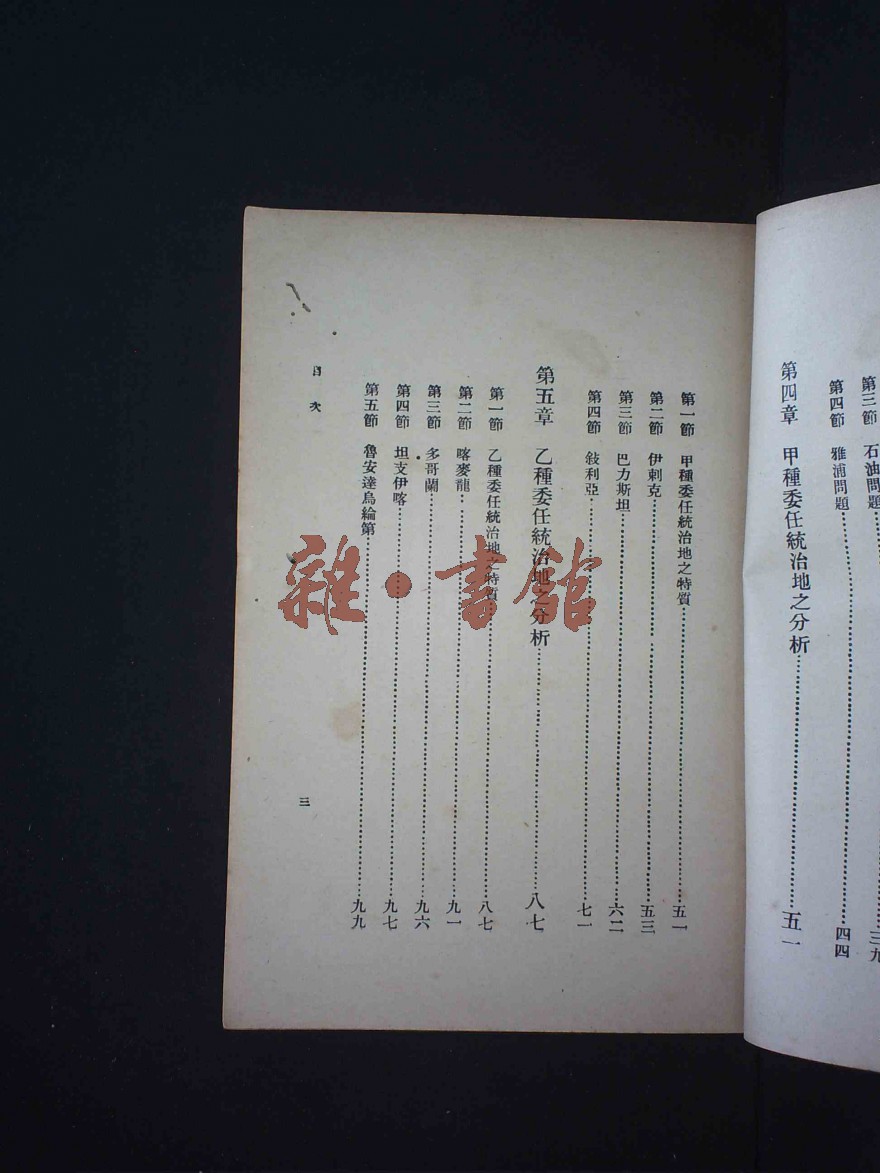 第三節 石油問題……三九
第四節 雅浦問題……四四
第四章 甲種委任統治地之分析……五一
第一節 甲種委任統治地之特質……五一
第二節 伊剌克……五三
第三節 巴力斯坦……六二
第四節 敍利亞……七一
第五章 乙種委任統治地之分析……八七
第一節 乙種委任統治地之特質……八七
第二節 喀麥龍……九一
第三節 多哥蘭……九六
第四節 坦支伊喀……九七
第五節 魯安達烏綸第……九九
目次
三
雜·書館